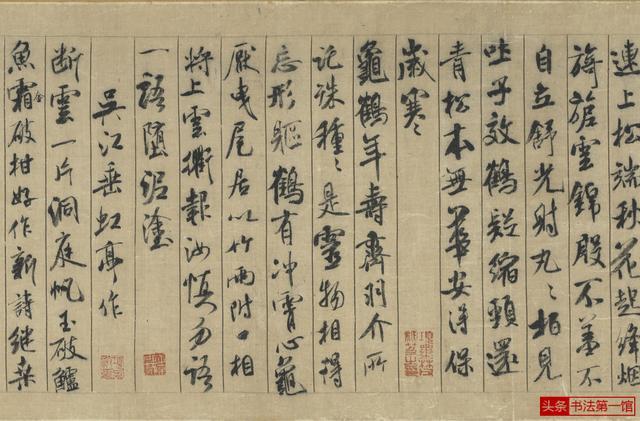 連上松端秋花起絳烟
旖旎雲錦殷不羞不
自立舒光射丸〻柏見
吐子效鶴疑縮頸還
青松本無華安得保
歲寒〻
龜鶴年壽齊羽介所
託殊種〻是靈物相得
忘形軀鶴有冲霄心龜
厭曳尾居以竹兩附口相
將上雲衢報汝慎勿語
一語墮泥塗
吳江垂虹亭作
斷雲一片洞庭帆玉破鱸
魚霜破柑好作新詩繼桑
头条 书法第一馆